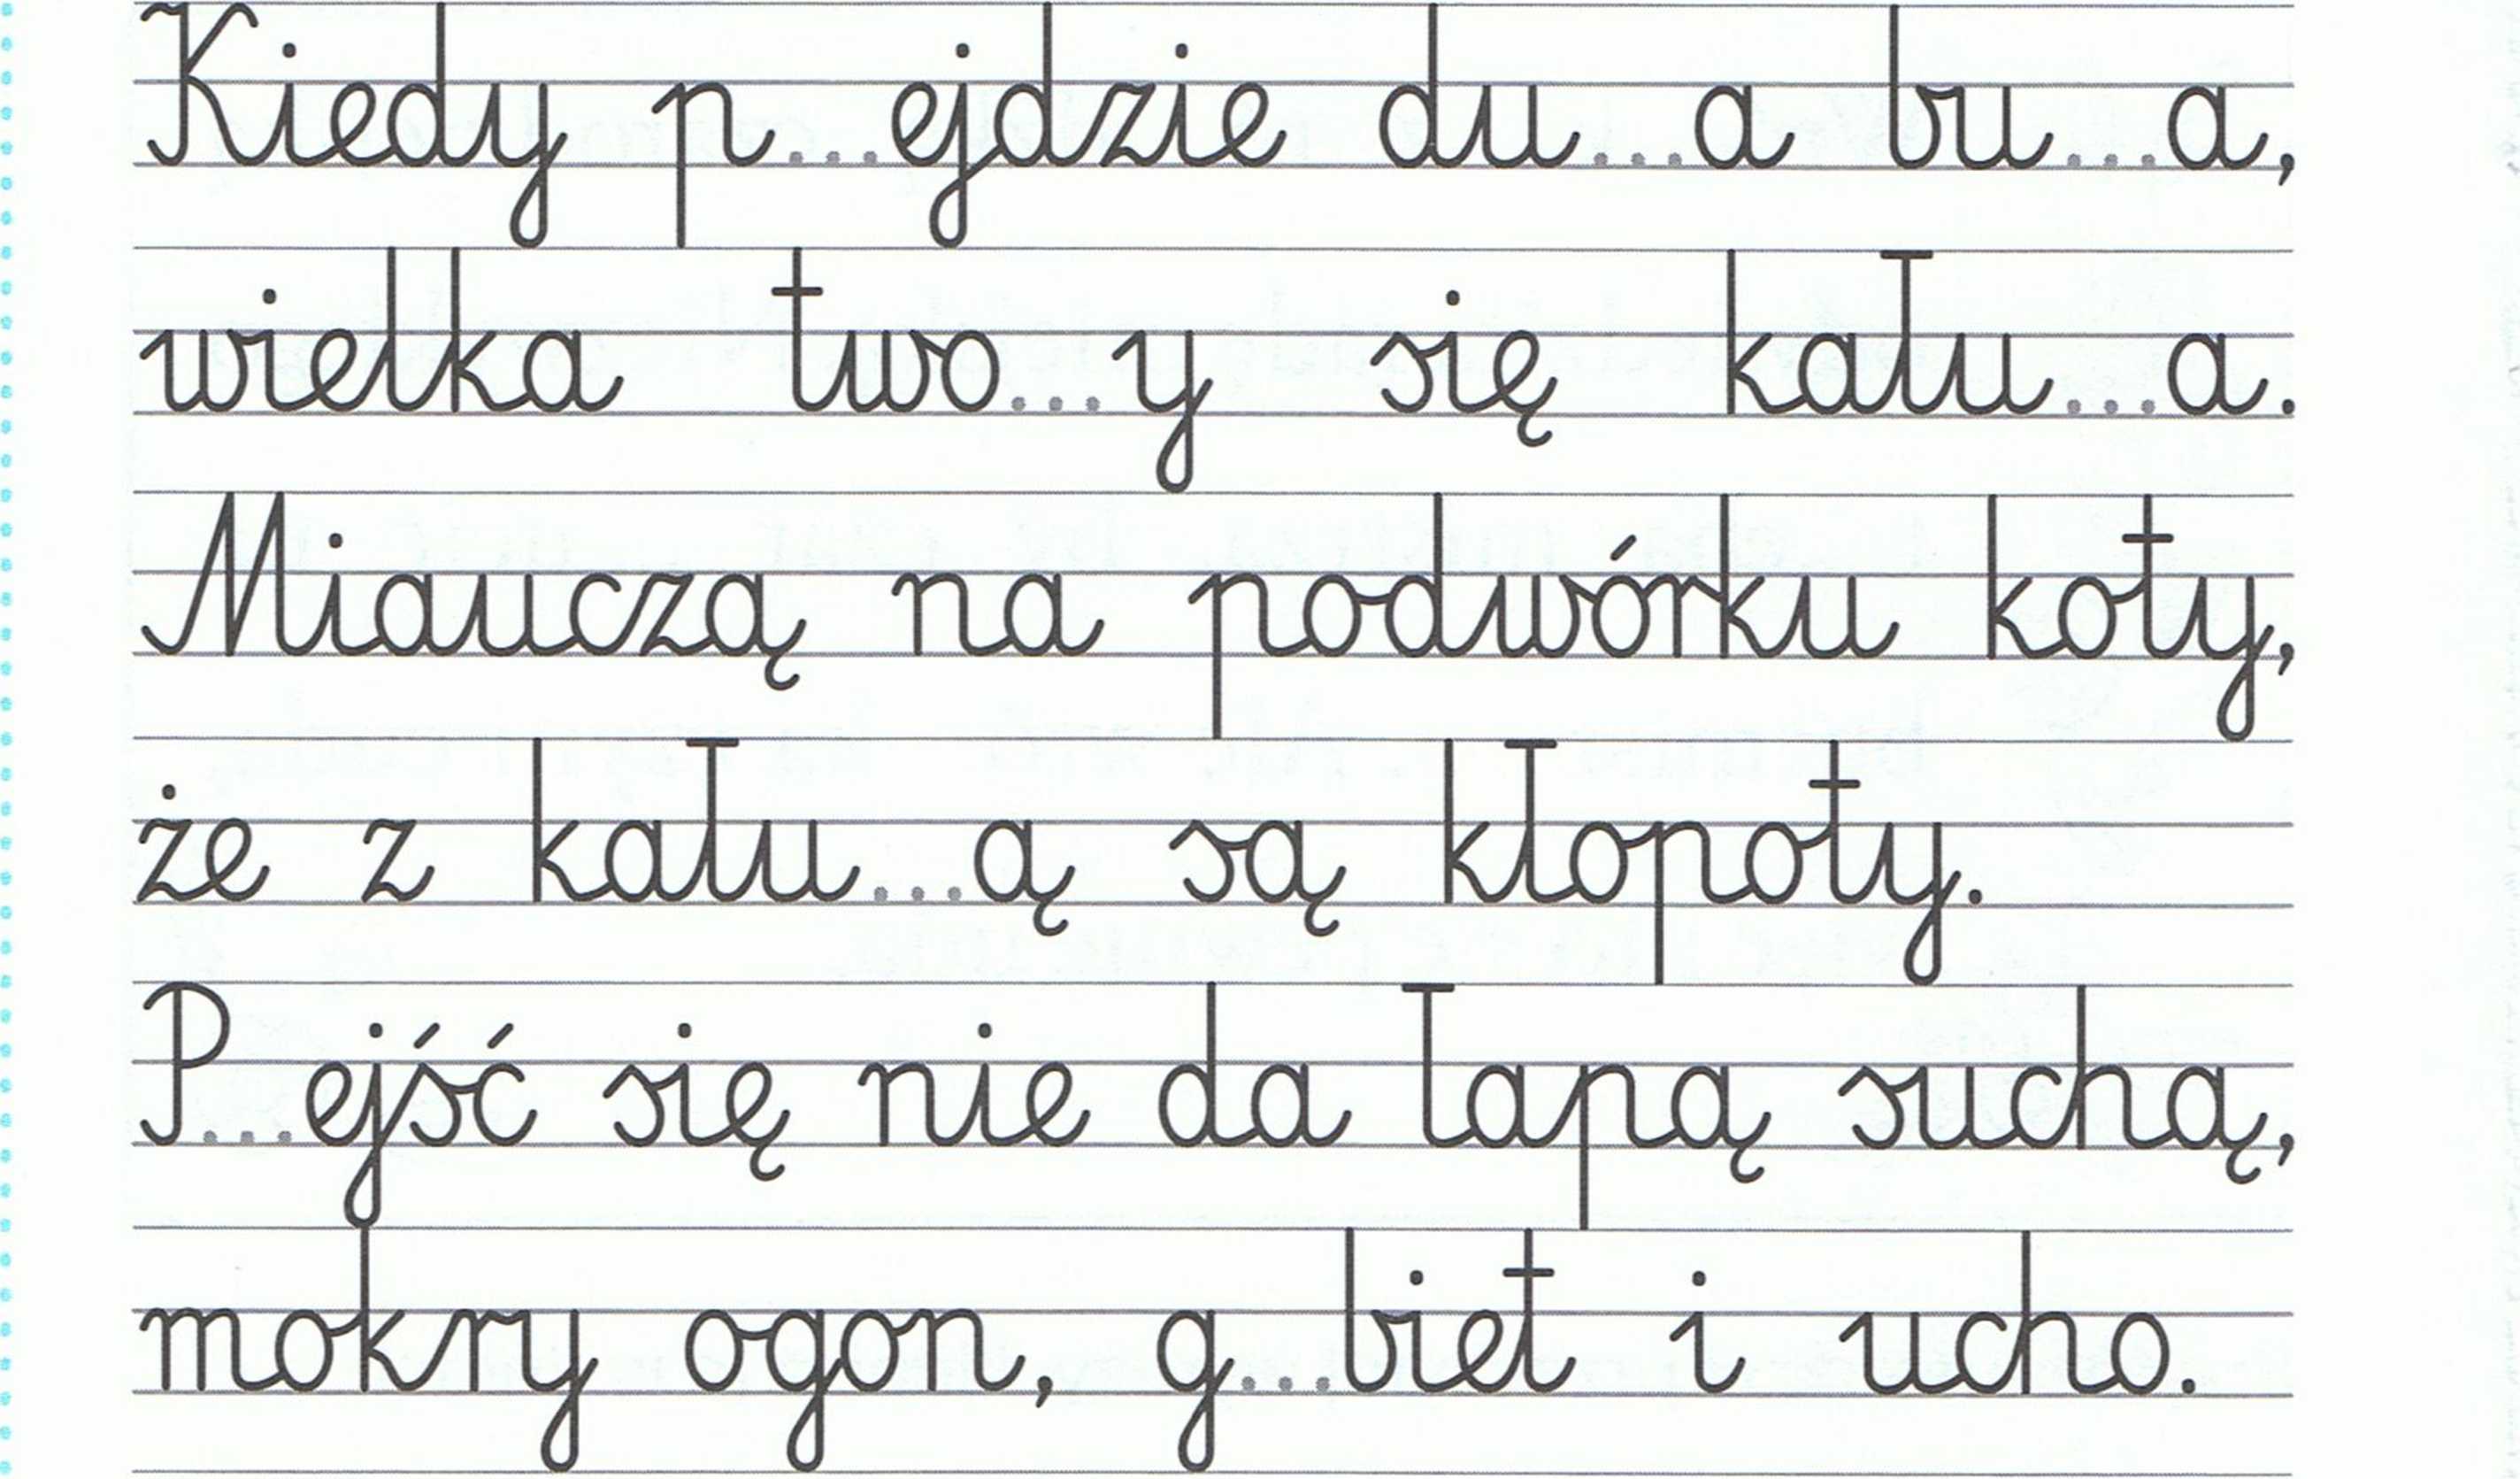 Kiedy p...ejdzie du...a bu...a,
wielka two...y się kału...a.
Miauczą na podwórku koty,
że z kału...ą są kłopoty.
P...ejść się nie da łapą suchą,
mokry ogon, g...biet i ucho.